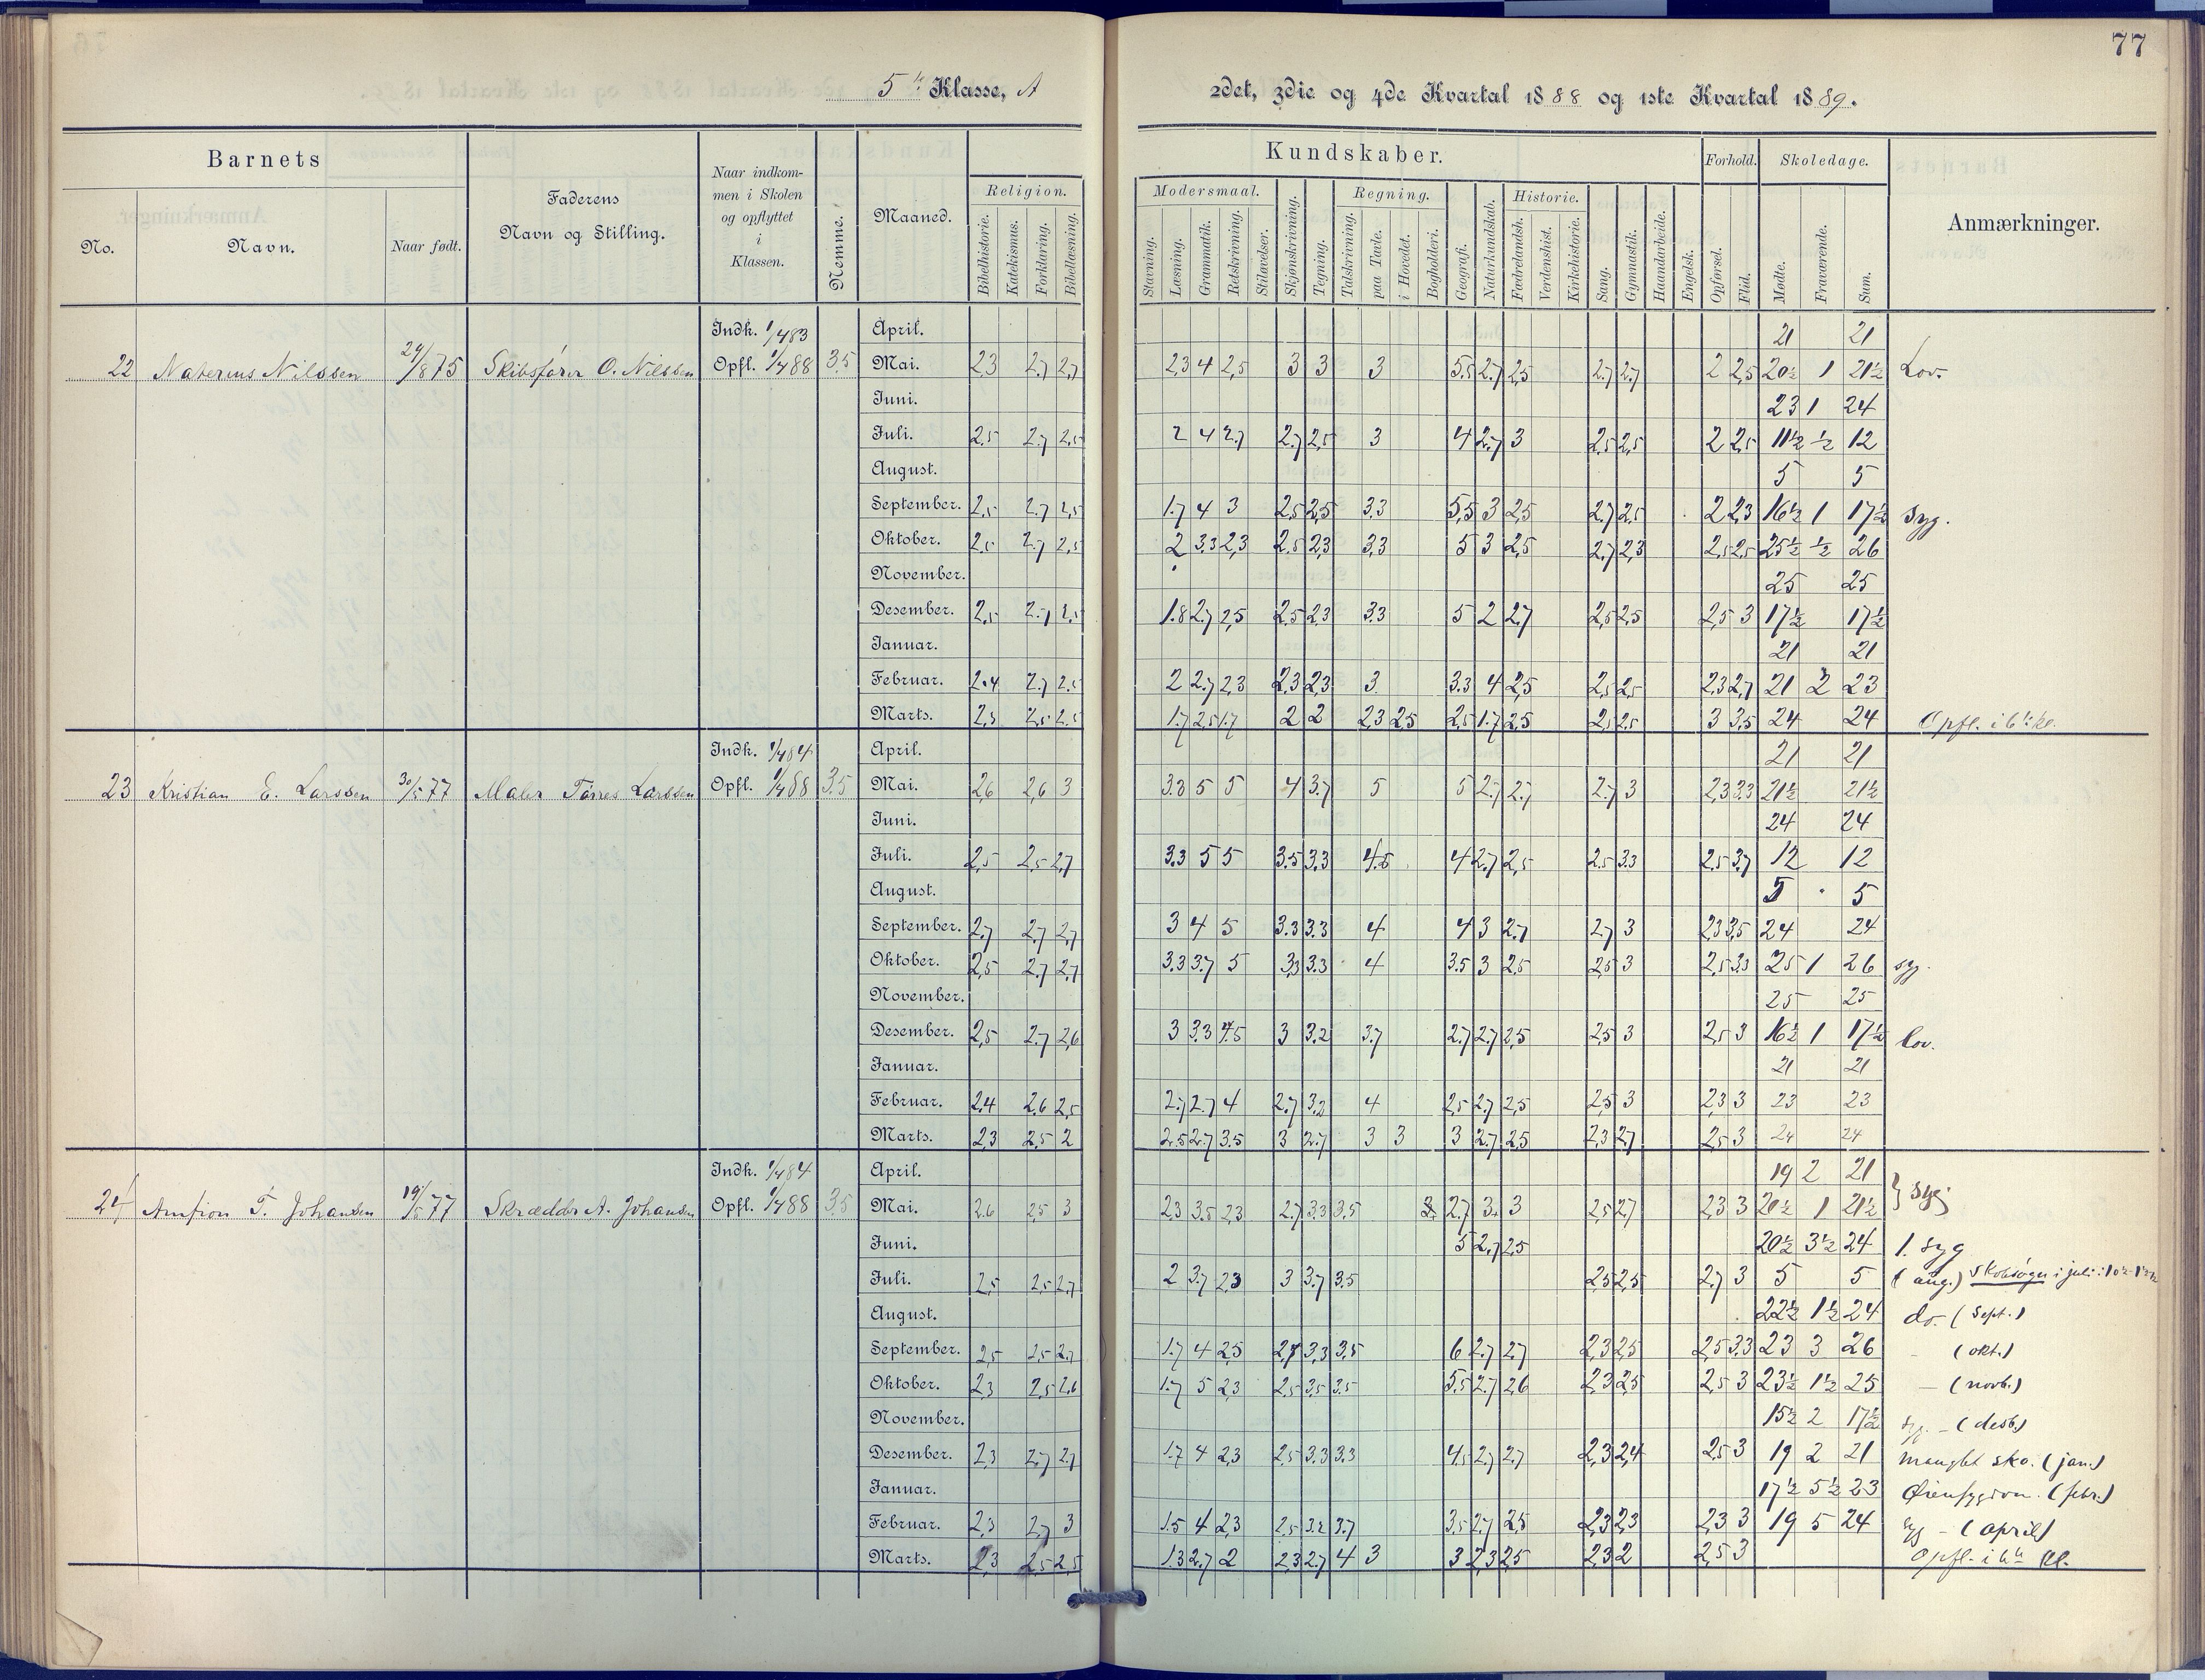 77
5te Klasse, A
2det, 3die og 4de Kvartal 1888 og 1ste Kvartal 1889.
Barnets
No.
Navn.
Naar født.
Faderens
Navn og Stilling.
Naar indkom-
men i Skolen
og opflyttet
i
Klassen.
Nemme.
Maaned.
Kundskaber.
Religion.
Bibelhistorie. Katekismus. Forklaring. Bibellæsning.
Modersmaal.
Stavning. Læsning. Grammatik. Retskrivning. Stiløvelser.
Skjønskrivning. Tegning.
Regning.
Talskrivning. paa Tavle. i Hovedet. Bogholderi.
Geografi. Naturkundskab.
Historie.
Fædrelandsh. Verdenshist. Kirkehistorie.
Sang. Gymnastik. Haandarbeide. Engelsk.
Forhold.
Opførsel. Flid.
Skoledage.
Mødte. Fraværende. Sum.
Anmærkninger.
Indk. 1/4 83 April. 21 21
22 Naterius Nilssen 24/8 75 Skibsfører O. Nilssen Opfl. 1/4 88 3.5 Mai. 2,3 2,7 2,7 2,3 4 2,5 3 3 3 5.5 2.7 2,5 2.7 2,7 2 2,5 20½ 1 21½ Lov.
Juni. 23 1 24
Juli. 2.5 2.7 2,5 2 4 2.7 2.7 2,5 3 4 2.7 3 2,5 2,5 2 2,5 11½ ½ 12
August. 5 5
September. 2,5 2.7 2,5 1.7 4 3 2,5 2,5 3.3 5,5 3 2,5 2.7 2,5 2 2,3 16½ 1 17½ syg.
Oktober. 2.5 2.7 2,5 2 3.3 2,3 2.5 2,3 3,3 5 3 2,5 2.7 2,3 2,5 2,5 25½ ½ 26
November. 25 25
Desember. 2,5 2.7 2,5 1.8 2.7 2,5 2.5 2,3 3.3 5 2 2,7 2,5 2,5 2,5 3 17½ 17½
Januar. 21 21
Februar. 2.4 2.7 2.5 2 2.7 2,3 2,3 2,3 3 3.3 4 2,5 2,5 2,5 2,3 2,7 21 2 23
Marts. 2,3 2,5 2,5 1.7 2,5 1.7 2 2 2,3 2,5 2,5 1.7 2,5 2,5 2,5 3 3,5 24 24 Opfl. i 6te kl.
Indk. 1/4 84 April. 21 21
23 Kristian E. Larssen 30/5 77 Maler Tørres Larssen Opfl. 1/4 88 3.5 Mai. 2,6 2,6 3 3.3 5 5 4 3.7 5 5 2.7 2.7 2.7 3 2,3 3.3 21½ 21½
Juni. 24 24
Juli. 2,5 2,5 2,7 3.3 5 5 3.5 3.3 4.5 4 2.7 2,5 2.5 3.3 2.5 3.7 12 12
August. 5 5
September. 2.7 2.7 2,7 3 4 5 3.3 3.3 4 4 3 2.7 2,7 3 2,3 3,5 24 24
Oktober. 2,5 2.7 2,7 3.3 3.7 5 3,3 3.3 4 3.5 3 2,5 2,5 3 2,5 3,3 25 1 26 syg.
November. 25 25
Desember. 2,5 2.7 2,6 3 3.3 4.5 3 3.2 3.7 2.7 2.7 2,5 2,5 3 2,5 3 16½ 1 17½ lov.
Januar. 21 21
Februar. 2,4 2.6 2,5 2.7 2.7 4 2.7 3,2 4 2,5 2,7 2,5 2,5 3 2,3 3 23 23
Marts. 2,3 2,5 2 2.5 2.7 3.5 3 2.7 3 3 3 2.7 2,5 2,3 2.7 2,5 3 24 24
Indk. 1/4 84 April. 19 2 21
24 Amfion T. Johansen 19/5 77 Skrædder A. Johansen Opfl. 1/4 88 3.5 Mai. 2.6 2,5 3 2,3 3.5 2,3 2.7 3.3 3,5 2.7 3. 3 2,5 2,7 2,3 3 20½ 1 21½ } syg
Juni. 5 2,7 2,5 20½ 3½ 24 1. syg
Juli. 2,5 2,5 2,7 2 3.7 2,3 3 3.7 3.5 2,5 2,5 2,7 3 5 5 (aug.) Skolesøgn i juli: 10½
August. 22½ 1½ 24 do. (Sept.)
September. 2,5 2,5 2.7 1.7 4 2,5 2,7 3,3 3,5 6 2.7 2.7 2,3 2,5 2,5 3.3 23 3 26 – (okt.)
Oktober. 2,3 2,5 2,6 1.7 5 2,3 2,5 3,5 3.5 5.5 2.7 2,6 2,3 2,5 2,5 3 23½ 1½ 25 – (novb.)
November. 15½ 2 17½ syg. – (desb.)
Desember. 2,3 2,7 2,7 1.7 4 2,3 2,5 3.3 3.3 4,5 2.7 2,7 2,3 2,4 2,5 3 19 2 21 manglet sko. (jan.)
Januar. 17½ 5½ 23 Øiensygdom. (febr.)
Februar. 2,3 2,7 3 1.5 4 2,3 2,5 3.2 3.7 3,5 2.7 2,5 2,3 2,3 2,3 3 19 5 24 syg – (april)
Marts. 2,3 2,5 2,5 1.3 2.7 2 2,3 2.7 4 3 3 2,3 2,5 2,3 2 2,5 3 Opfl. i 6te kl.